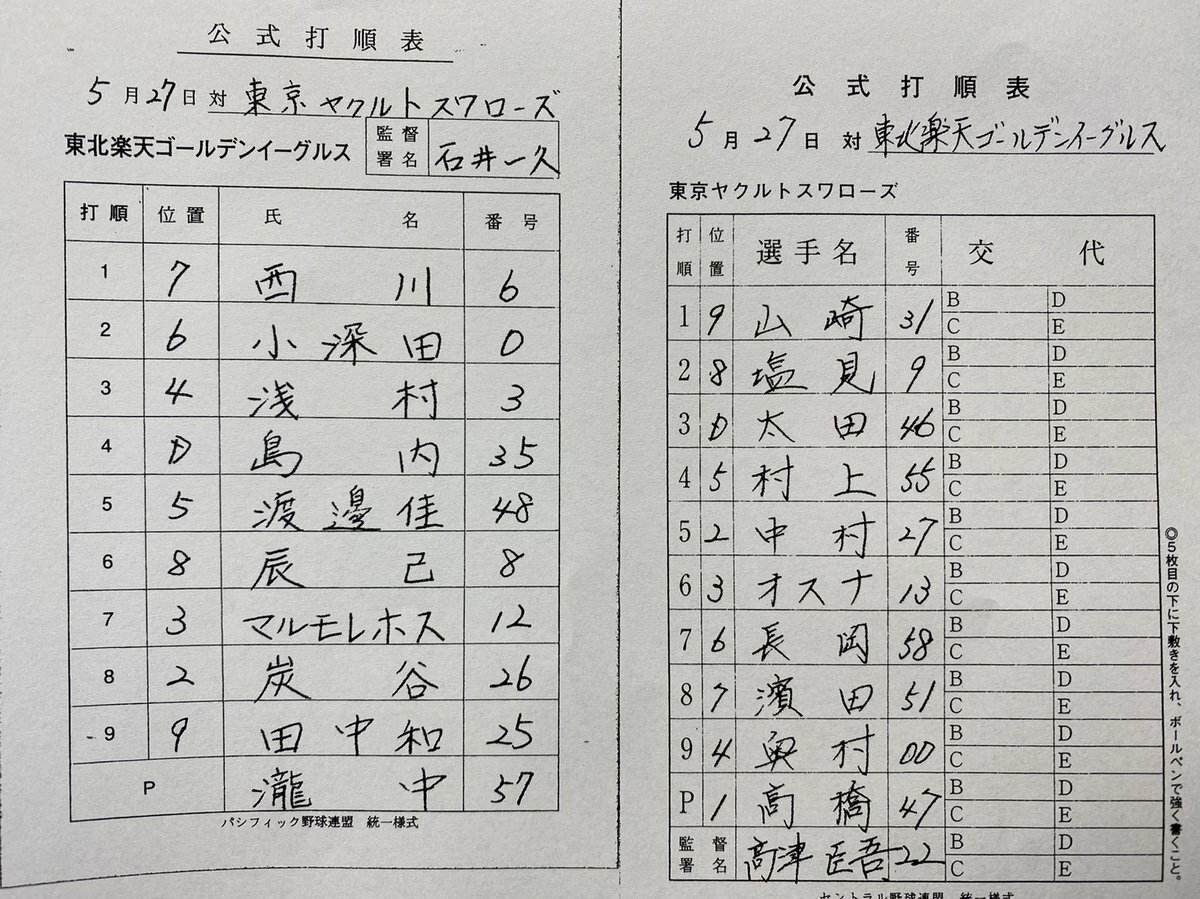 公式打順表
5月27日 対 東京ヤクルトスワローズ
東北楽天ゴールデンイーグルス 監督署名 石井一久
打順 位置 氏名 番号
1 7 西川 6
2 6 小深田 0
3 4 浅村 3
4 D 島内 35
5 5 渡邊佳 48
6 8 辰己 8
7 3 マルモレホス 12
8 2 炭谷 26
9 9 田中和 25
P 瀧中 57
パシフィック野球連盟 統一様式
公式打順表
5月27日 対 東北楽天ゴールデンイーグルス
東京ヤクルトスワローズ
打順 位置 選手名 番号 交代
1 9 山崎 31 B D
C E
2 8 塩見 9 B D
C E
3 D 太田 46 B D
C E
4 5 村上 55 B D
C E
5 2 中村 27 B D
C E
6 3 オスナ 13 B D
C E
7 6 長岡 58 B D
C E
8 7 濱田 51 B D
C E
9 4 奥村 00 B D
C E
P 1 高橋 47 B D
C E
監督署名 高津臣吾 22 B D
C E
セントラル野球連盟 統一様式
◎5枚目の下に下敷きを入れ、ボールペンで強く書くこと。